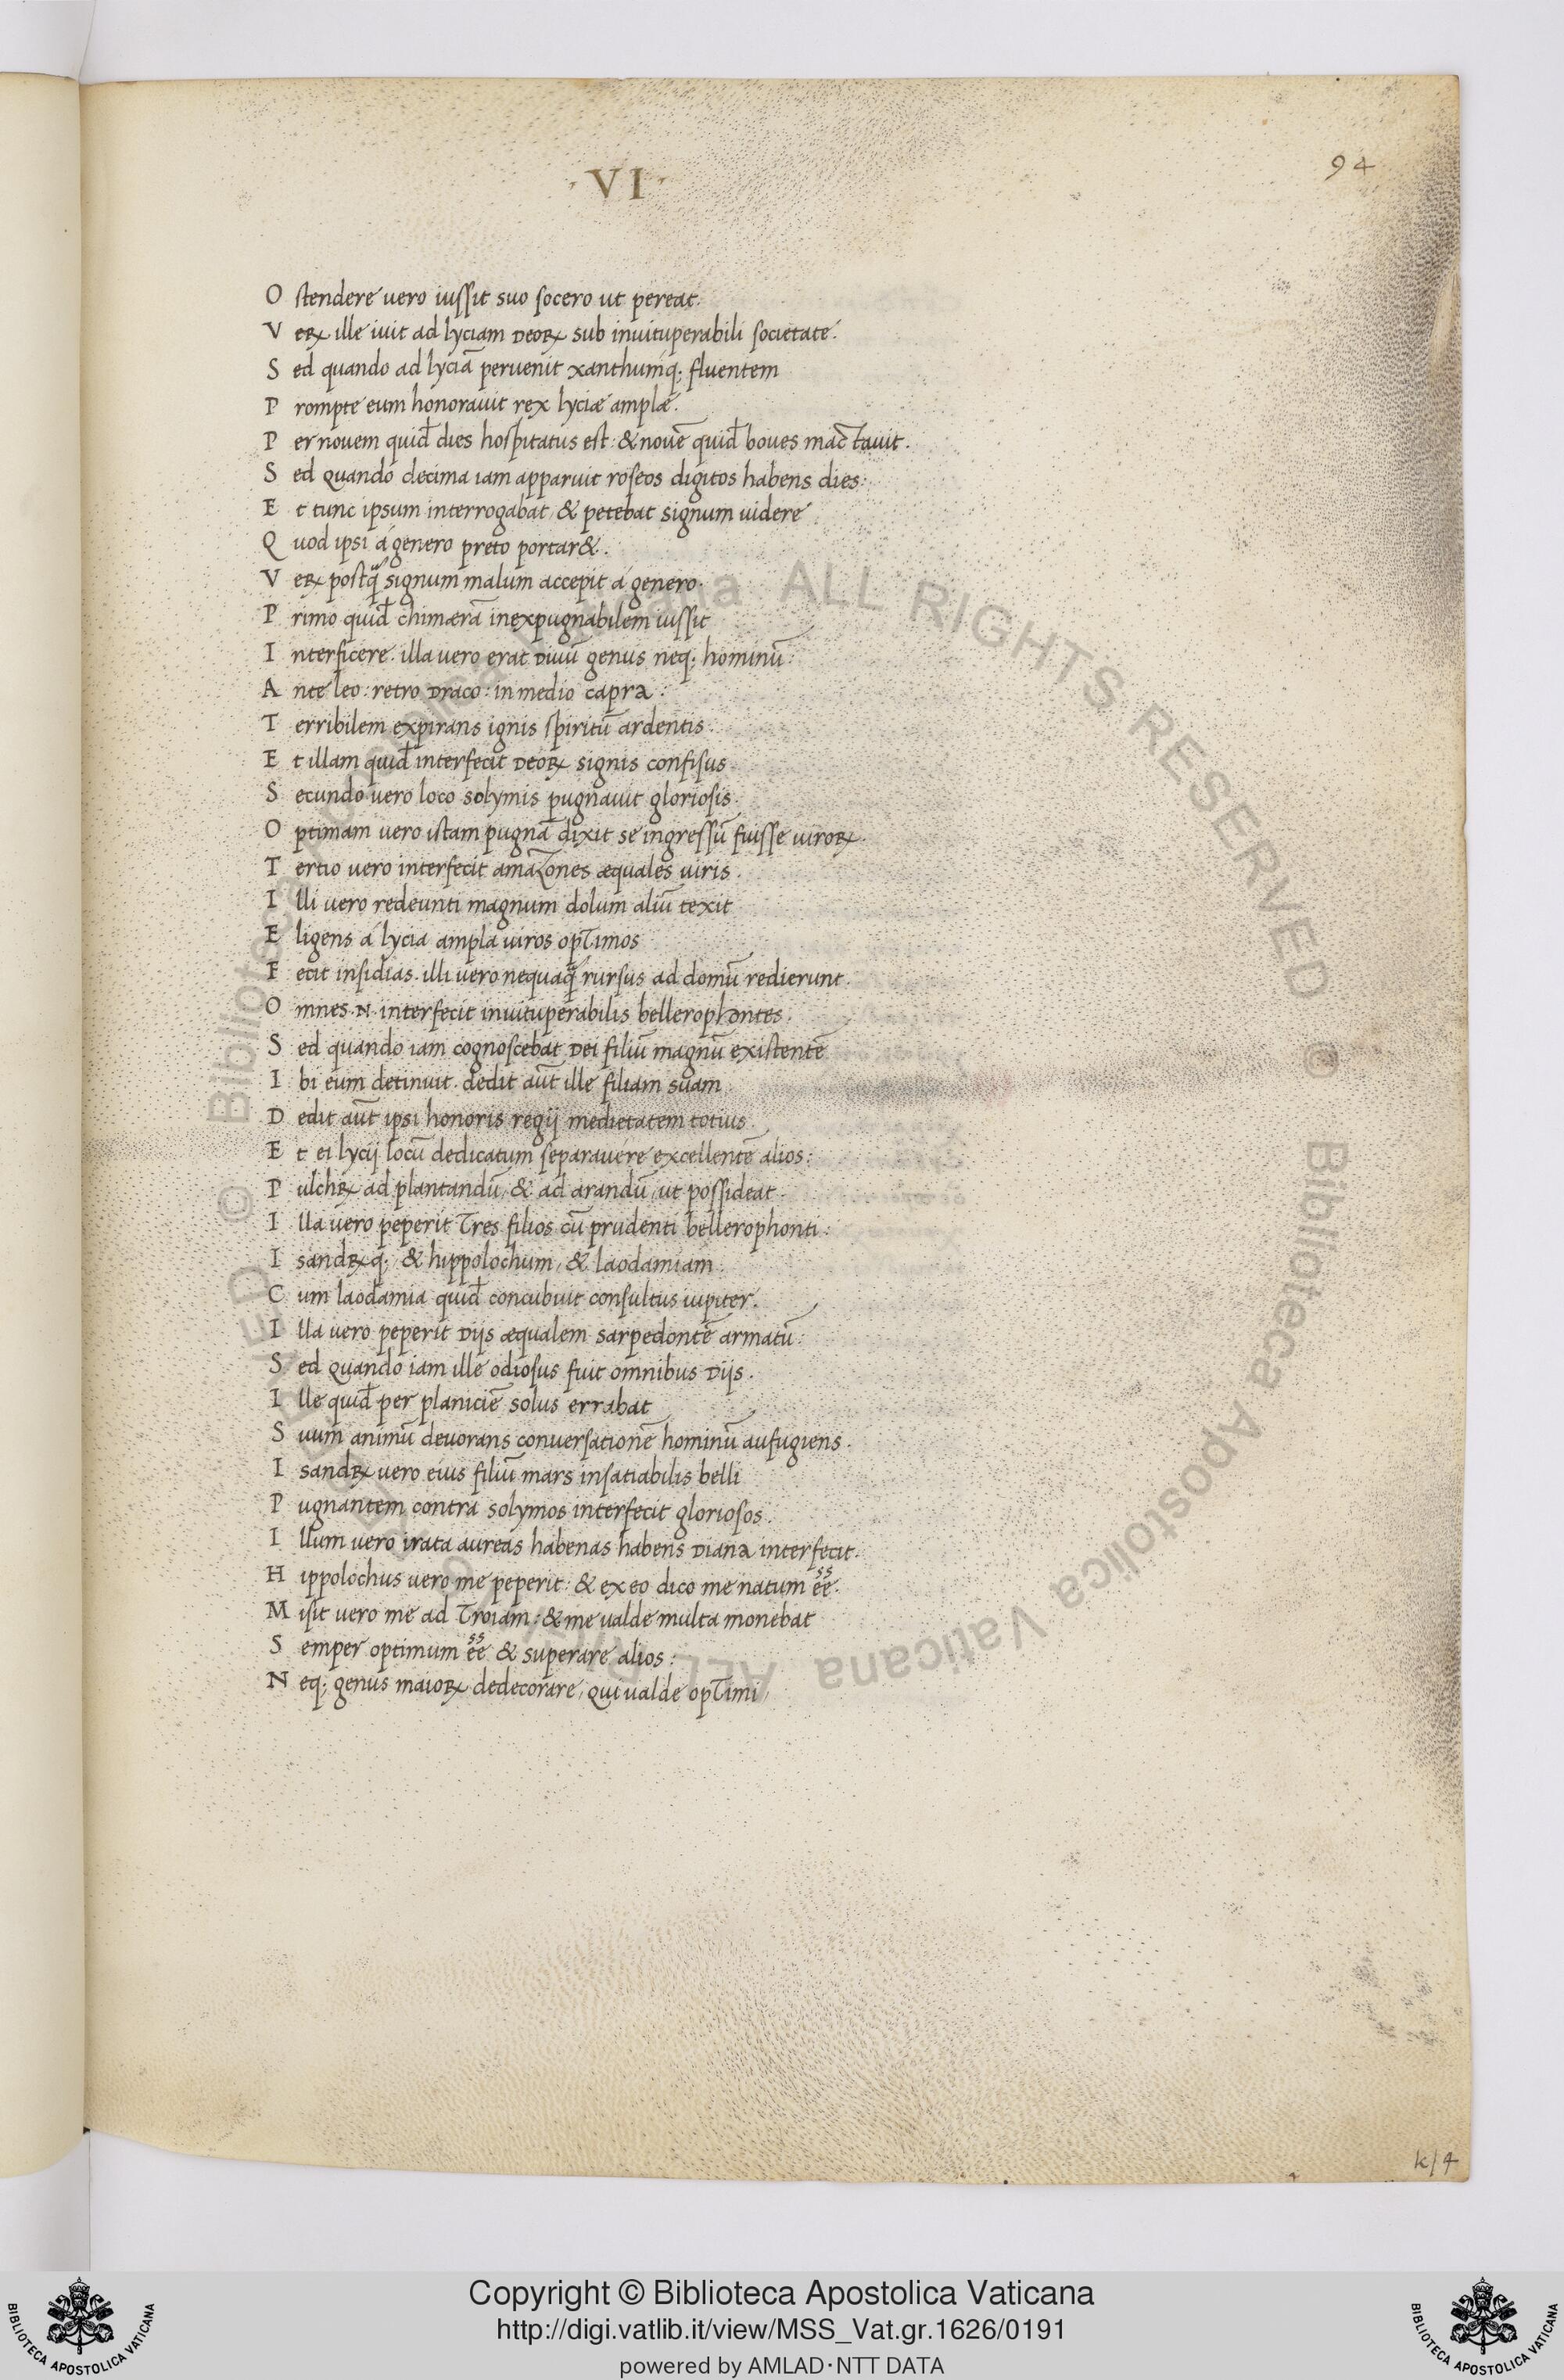 ·VI·
94
O stendere vero iussit suo socero ut pereat.
V eꝝ ille ivit ad lyciam deoꝝ sub invituperabili societate.
S ed quando ad lyciā pervenit xanthumq; fluentem
P rompte eum honoravit rex lyciæ amplæ.
P er novem quid̄ dies hospitatus est: & novē quid̄ boves mactavit.
S ed quando decima iam apparuit roseos digitos habens dies:
E t tunc ipsum interrogabat, & petebat signum videre
Q uod ipsi á genero preto portar&.
V eꝝ postq̄ signum malum accepit á genero.
P rimo quid̄ chimærā inexpugnabilem iussit
I nterficere. illa vero erat divū genus neq; hominū:
A nte leo: retro draco: in medio capra:
T erribilem expirans ignis spiritū ardentis.
E t illam quid̄ interfecit deoꝝ signis confisus.
S ecundo vero loco solymis pugnavit gloriosis.
O ptimam vero istam pugnā dixit se ingressū fuisse viroꝝ.
T ertio vero interfecit amazones æquales viris.
I lli vero redeunti magnum dolum aliū texit
E ligens á lycia ampla viros optimos
F ecit insidias. illi vero nequaq̄ rursus ad domū redierunt.
O mnes .N. interfecit invituperabilis bellerophontes.
S ed quando iam cognoscebat dei filiū magnū existentē
I bi eum detinuit. dedit aūt ille filiam suam
D edit aūt ipsi honoris regij medietatem totius.
E t ei lycij locū dedicatum separavere excellentē alios:
P ulchꝝ ad plantandū, & ad arandū, ut possideat.
I lla vero peperit tres filios cū prudenti bellerophonti:
I sandꝝq; & hippolochum, & laodamiam.
C um laodamia quid̄ concubuit consultus iupiter.
I lla vero peperit dijs æqualem sarpedontē armatū:
S ed quando iam ille odiosus fuit omnibus dijs.
I lle quid̄ per planiciē solus errabat
S uum animū devorans conversationē hominū aufugiens.
I sandꝝ vero eius filiū mars insatiabilis belli
P ugnantem contra solymos interfecit gloriosos.
I llum vero irata aureas habenas habens diana interfecit.
H ippolochus vero me peperit: & ex eo dico me natum eēˢˢ.
M isit vero me ad troiam: & me valde multa monebat
S emper optimum eēˢˢ & superare alios:
N eq; genus maioꝝ dedecorare, qui valde optimi,
k/4
© Biblioteca Apostolica Vaticana ALL RIGHTS RESERVED © Biblioteca Apostolica Vaticana ALL RIGHTS RESERVED
Copyright © Biblioteca Apostolica Vaticana
http://digi.vatlib.it/view/MSS_Vat.gr.1626/0191
powered by AMLAD·NTT DATA
BIBLIOTECA APOSTOLICA VATICANA
BIBLIOTECA APOSTOLICA VATICANA